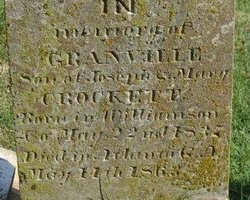 IN
memory of
GRANVILLE
Son of Joseph & Mary
CROCKETT
Born in Williamson
Co May 22nd 183
Died in Atlanta G.A.
May 11th 186